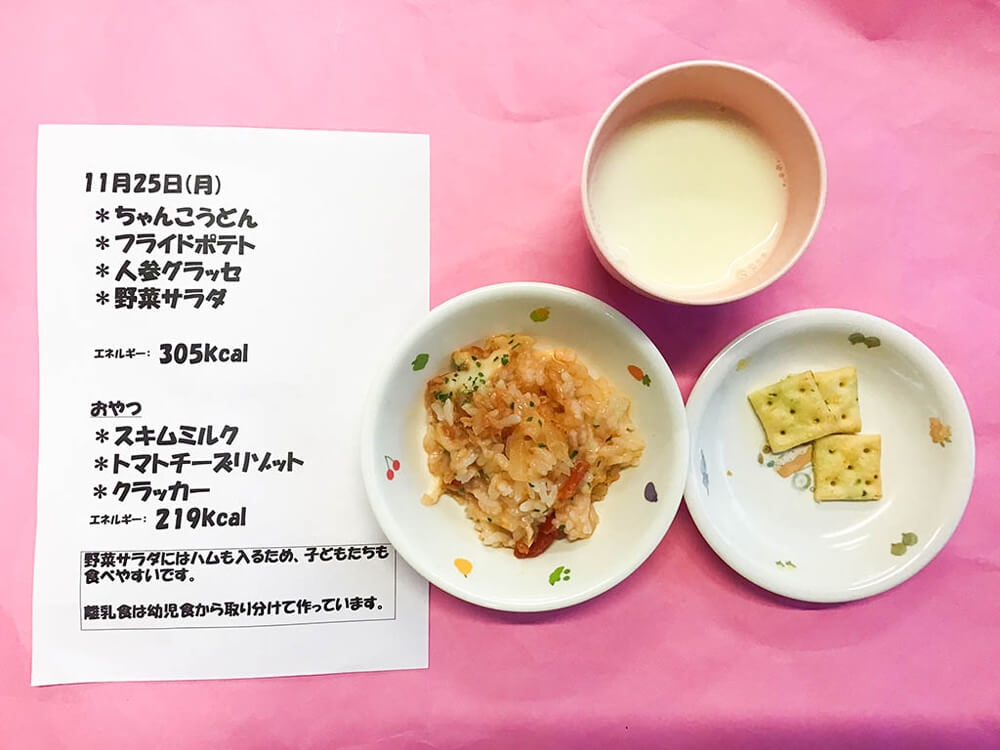 11月25日(月)
＊ちゃんこうどん
＊フライドポテト
＊人参グラッセ
＊野菜サラダ
エネルギー： 305kcal
おやつ
＊スキムミルク
＊トマトチーズリゾット
＊クラッカー
エネルギー： 219kcal
野菜サラダにはハムも入るため、子どもたちも
食べやすいです。
離乳食は幼児食から取り分けて作っています。